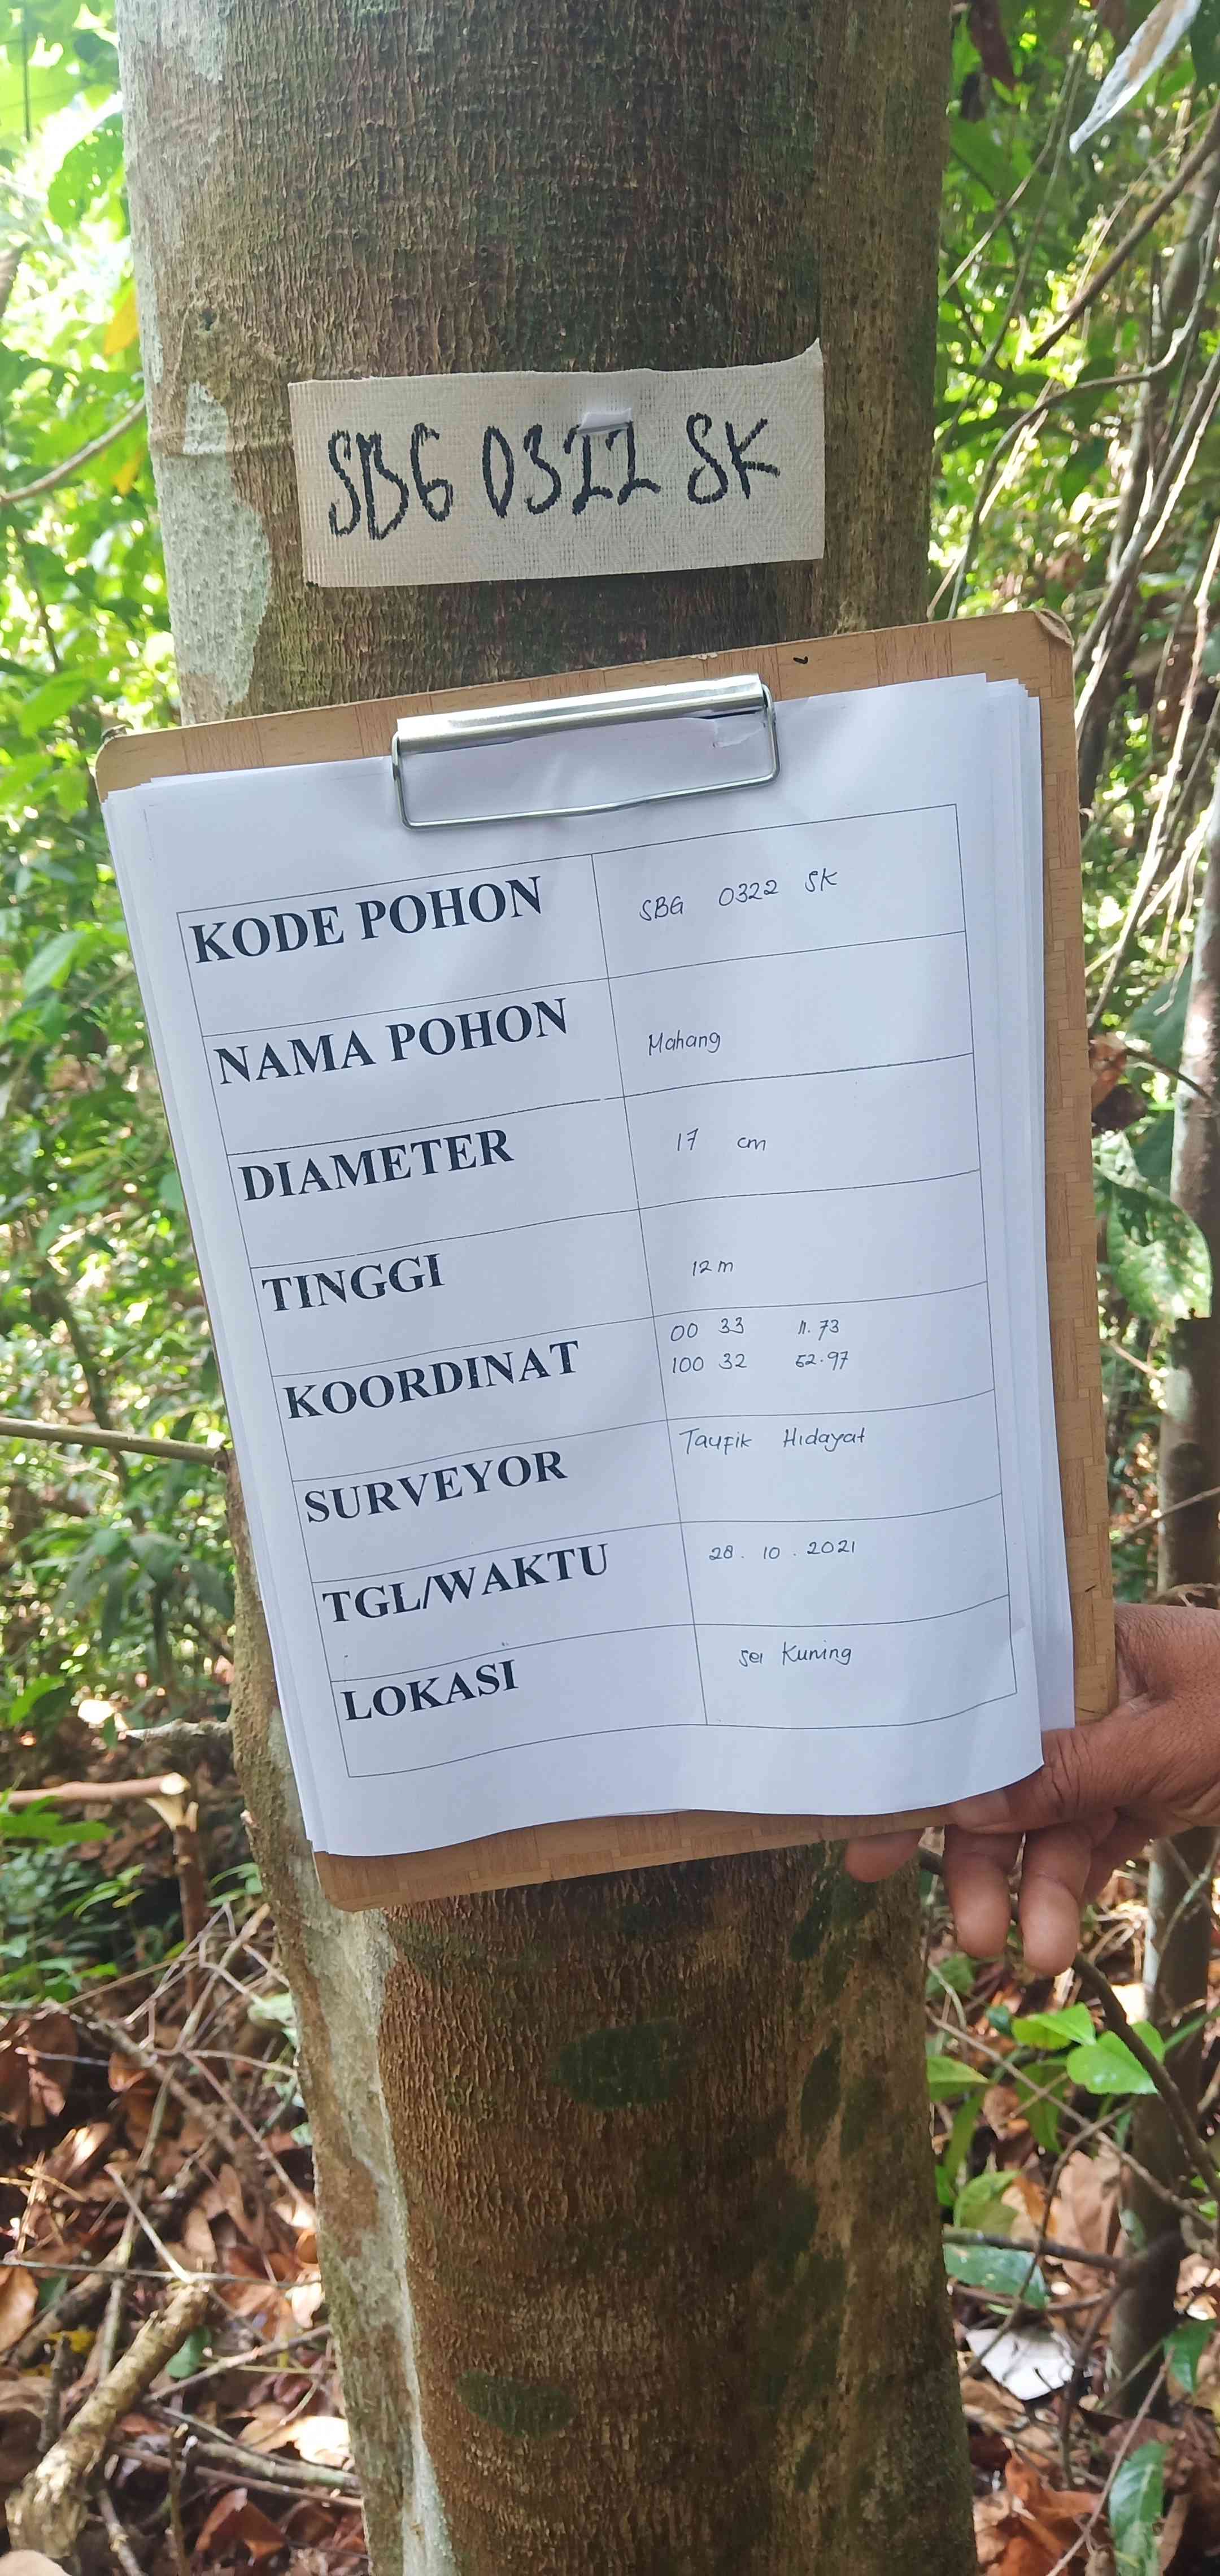 SBG 0322 SK
KODE POHON SBG 0322 SK
NAMA POHON Mahang
DIAMETER 17 cm
TINGGI 12 m
KOORDINAT 00 33 11.73
100 32 52.97
SURVEYOR Taufik Hidayat
TGL/WAKTU 28.10.2021
LOKASI Sei Kuning